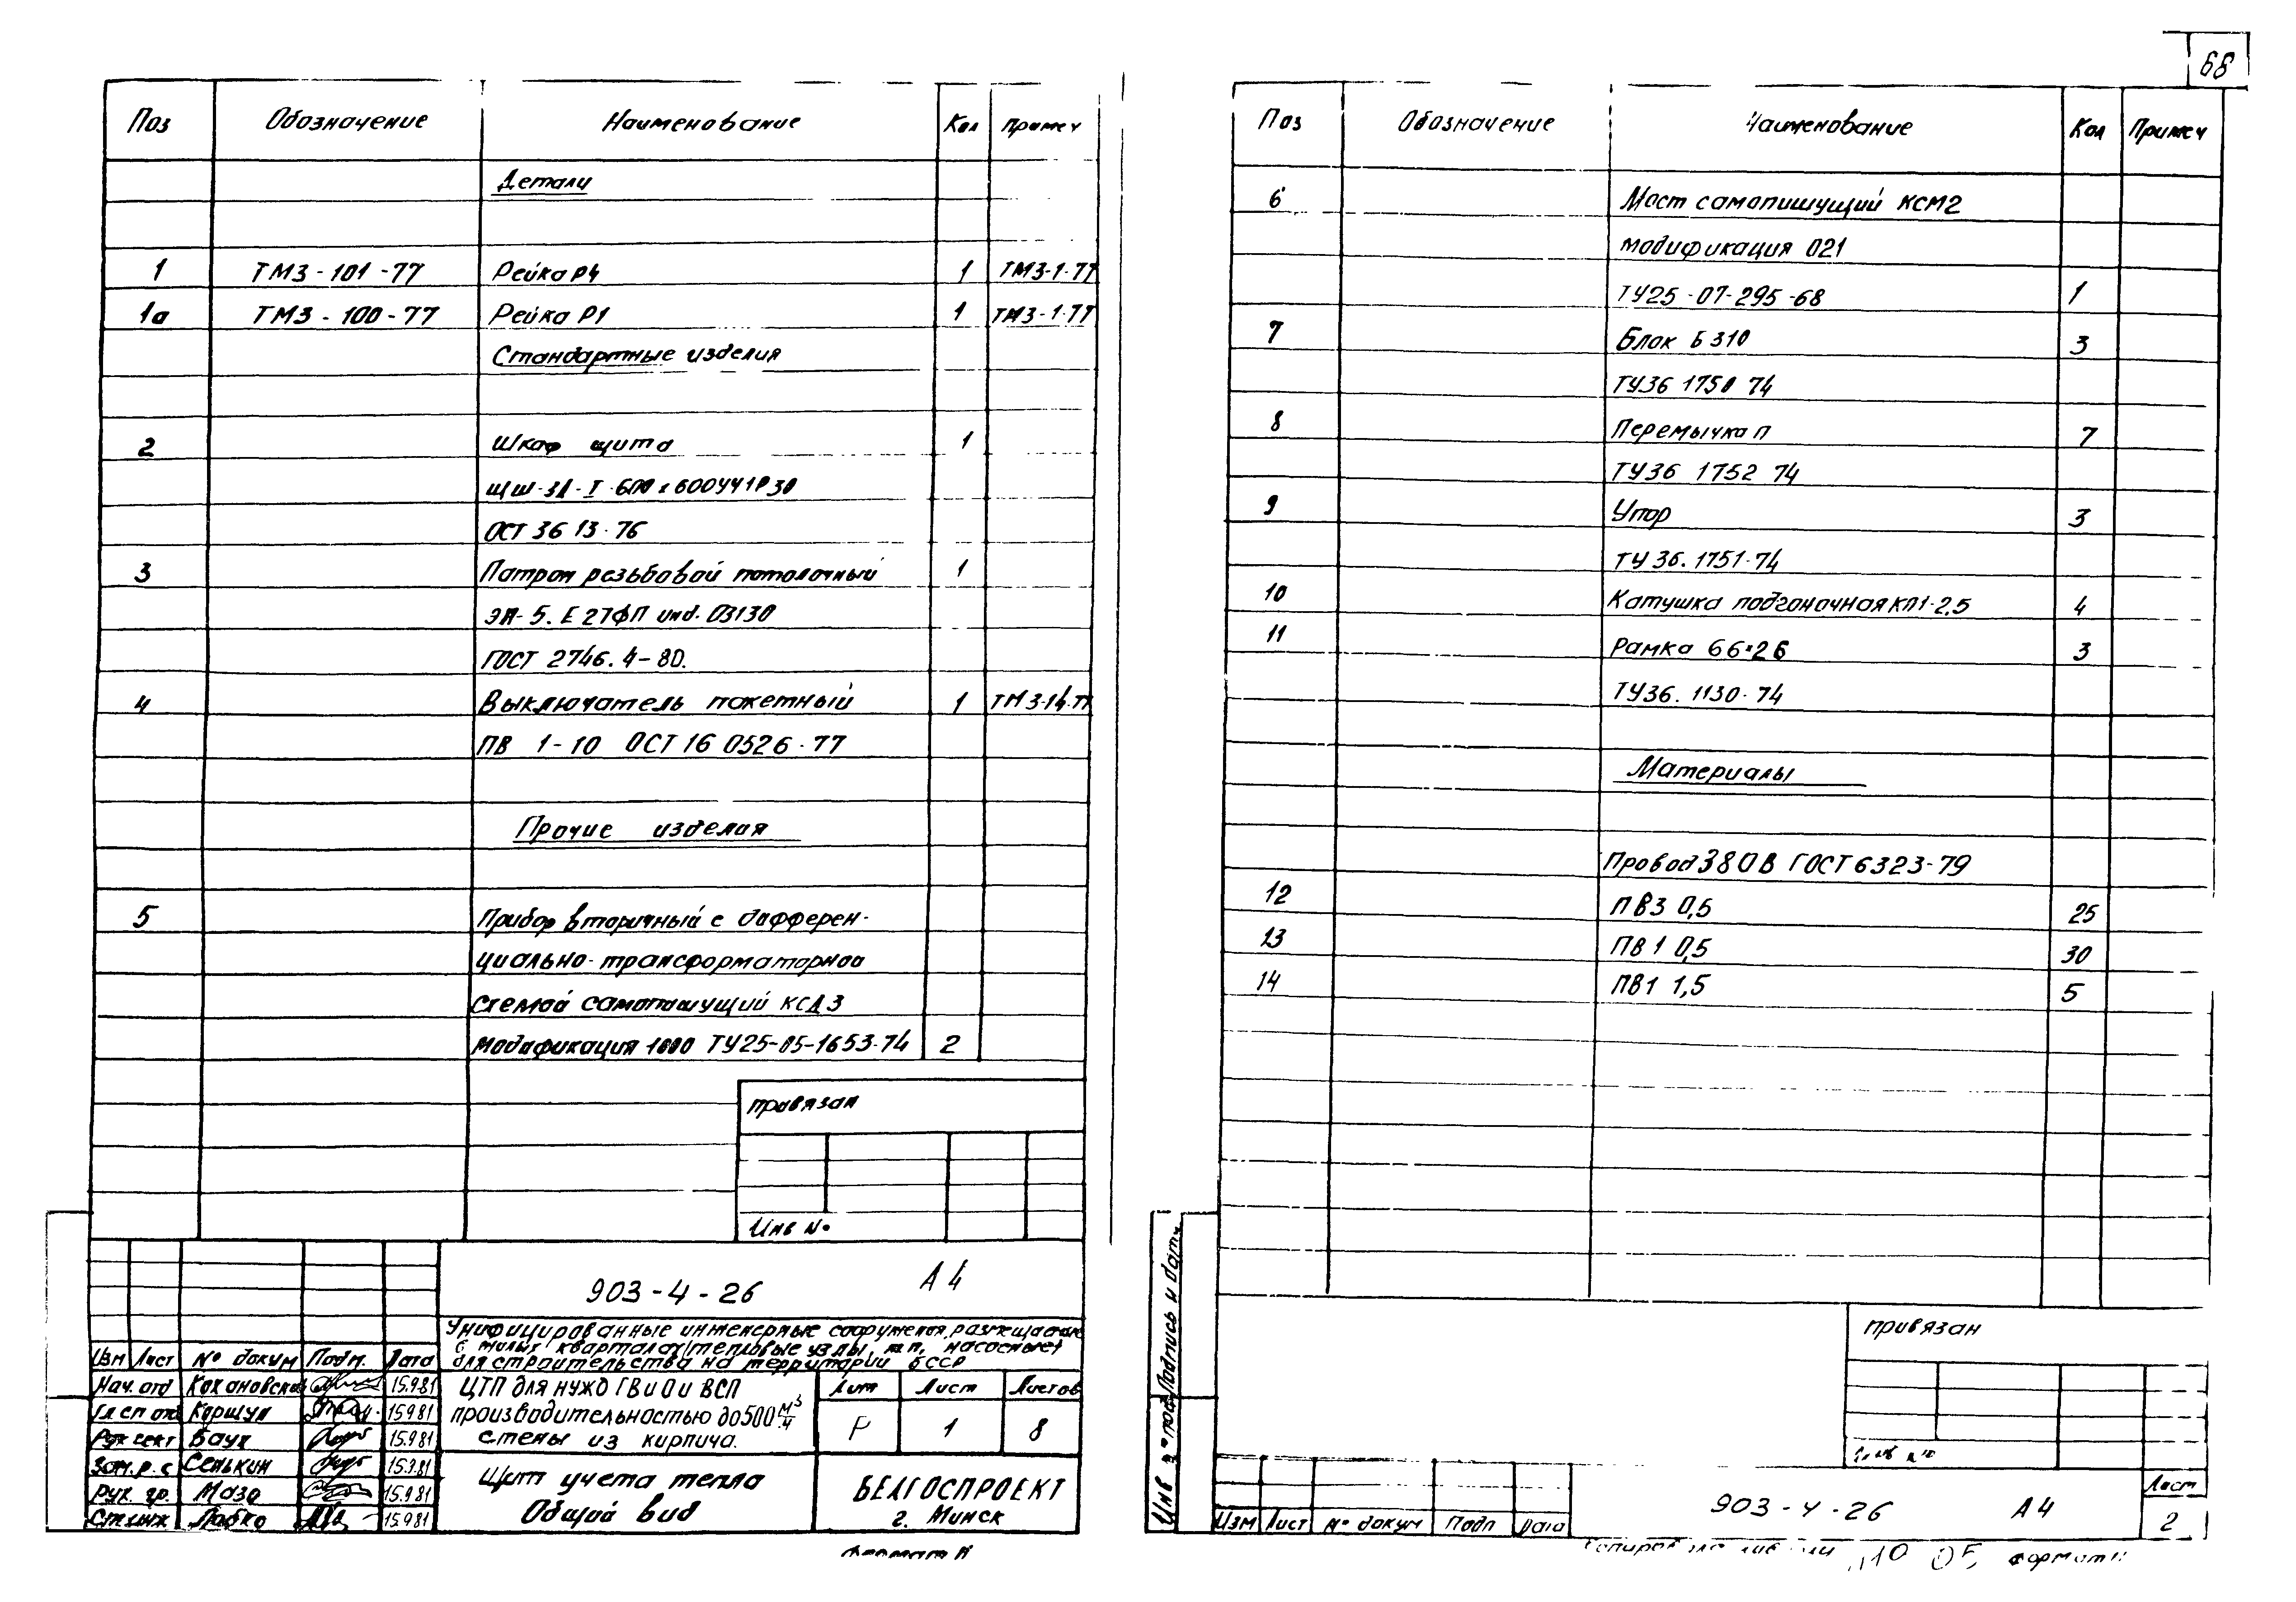 68
Поз Обозначение Наименование Кол Примеч
Детали
1 ТМ3-101-77 Рейка Р4 1 ТМ3-1-77
1а ТМ3-100-77 Рейка Р1 1 ТМ3-1-77
Стандартные изделия
2 Шкаф щита 1
ОСТ 36 13-76
3 Патрон резьбовой потолочный 1
Е27ФП инд. 03130
ГОСТ 2746.4-80.
4 Выключатель пакетный 1
ПВ 1-10 ОСТ 16 0526-77
Прочие изделия
5 Прибор вторичный с дифферен-
циально-трансформаторной
схемой самопишущий КСД3
модификация 1000 ТУ25-05-1653-74 2
привязан
Инв №
903-4-26 А4
Унифицированные инженерные сооружения, размещаемые
в жилых кварталах/тепловые узлы, т.п. насосные/
для строительства на территории БССР
Изм Лист № докум Подп. Дата
Нач. отд Кохановский 15.9.81
Гл сп отд Коршул 15.9.81
Рук сект Баух 15.9.81
Зам. р. с Сенькин 15.9.81
Рук. гр. Мазо 15.9.81
Ст инж Лабко 15.9.81
ЦТП для нужд ГВ и О и ВСП
производительностью до 500 м³/ч
стены из кирпича.
Лит Лист Листов
Р 1 8
Щит учета тепла
Общий вид
БЕЛГОСПРОЕКТ
г. Минск
Формат
Поз Обозначение Наименование Кол Примеч
6 Мост самопишущий КСМ2
модификация 021
ТУ25-07-295-68 1
7 Блок Б310 3
ТУ36 1750 74
8 Перемычка П 7
ТУ36 1752 74
9 Упор 3
ТУ 36.1751-74
10 Катушка подгоночная КП1-2,5 4
11 Рамка 66×26 3
ТУ36.1130-74
Материалы
Провод 380В ГОСТ 6323-79
12 ПВ3 0,5 25
13 ПВ1 0,5 30
14 ПВ1 1,5 5
привязан
Инв №
Инв № подл Подпись и дата
Изм Лист № докум Подп Дата
903-4-26 А4
Лист
2
Формат